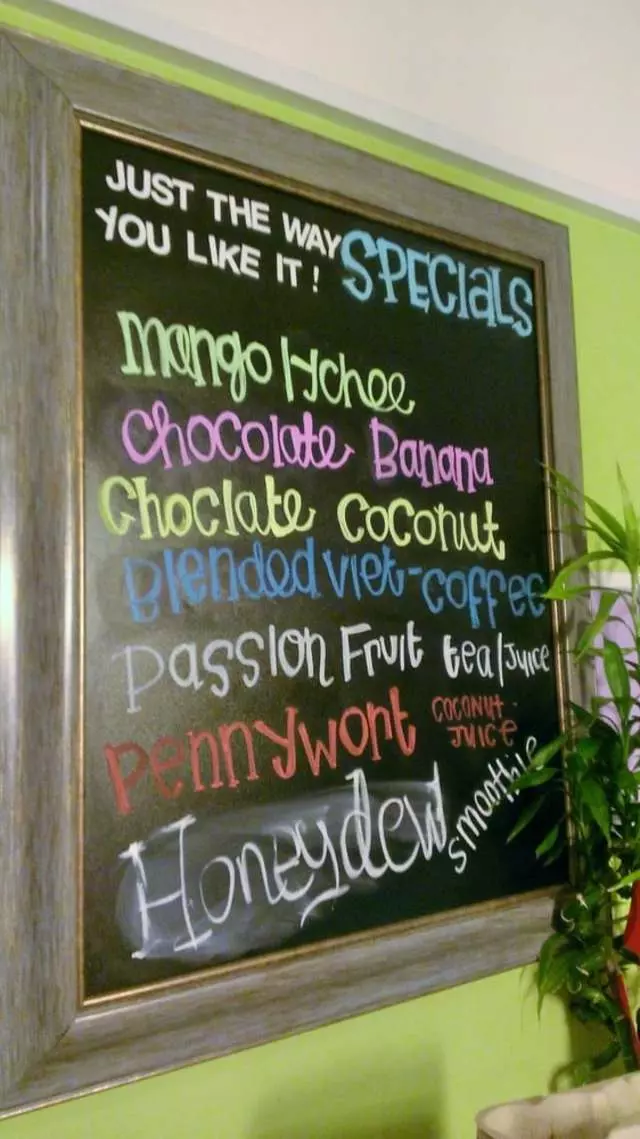 JUST THE WAY
YOU LIKE IT !
SPECIALS
Mango lychee
Chocolate Banana
Choclate Coconut
Blended Viet-Coffee
Passion Fruit tea/Juice
Pennywort coconut
juice
Honeydew smoothie